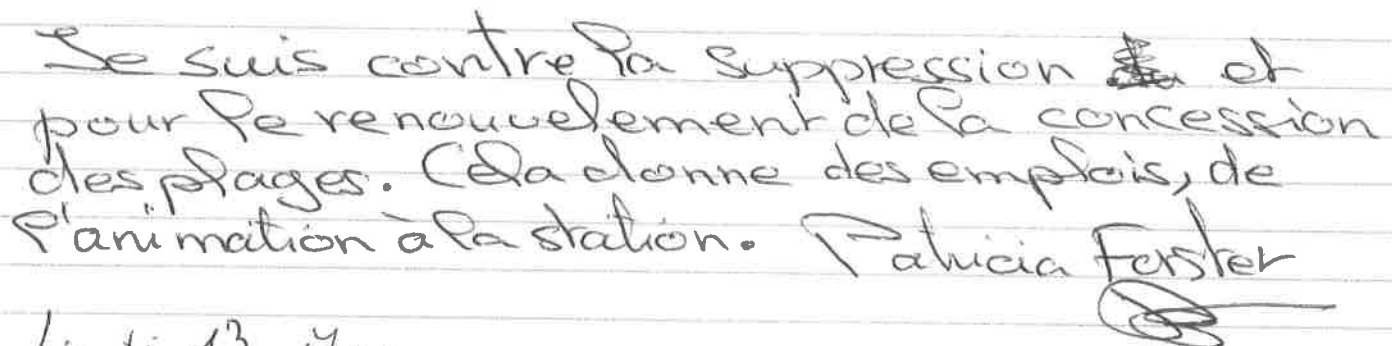 Je suis contre la suppression et
pour le renouvelement de la concession
des plages. Cela donne des emplois, de
l'animation à la station. Patricia Forster